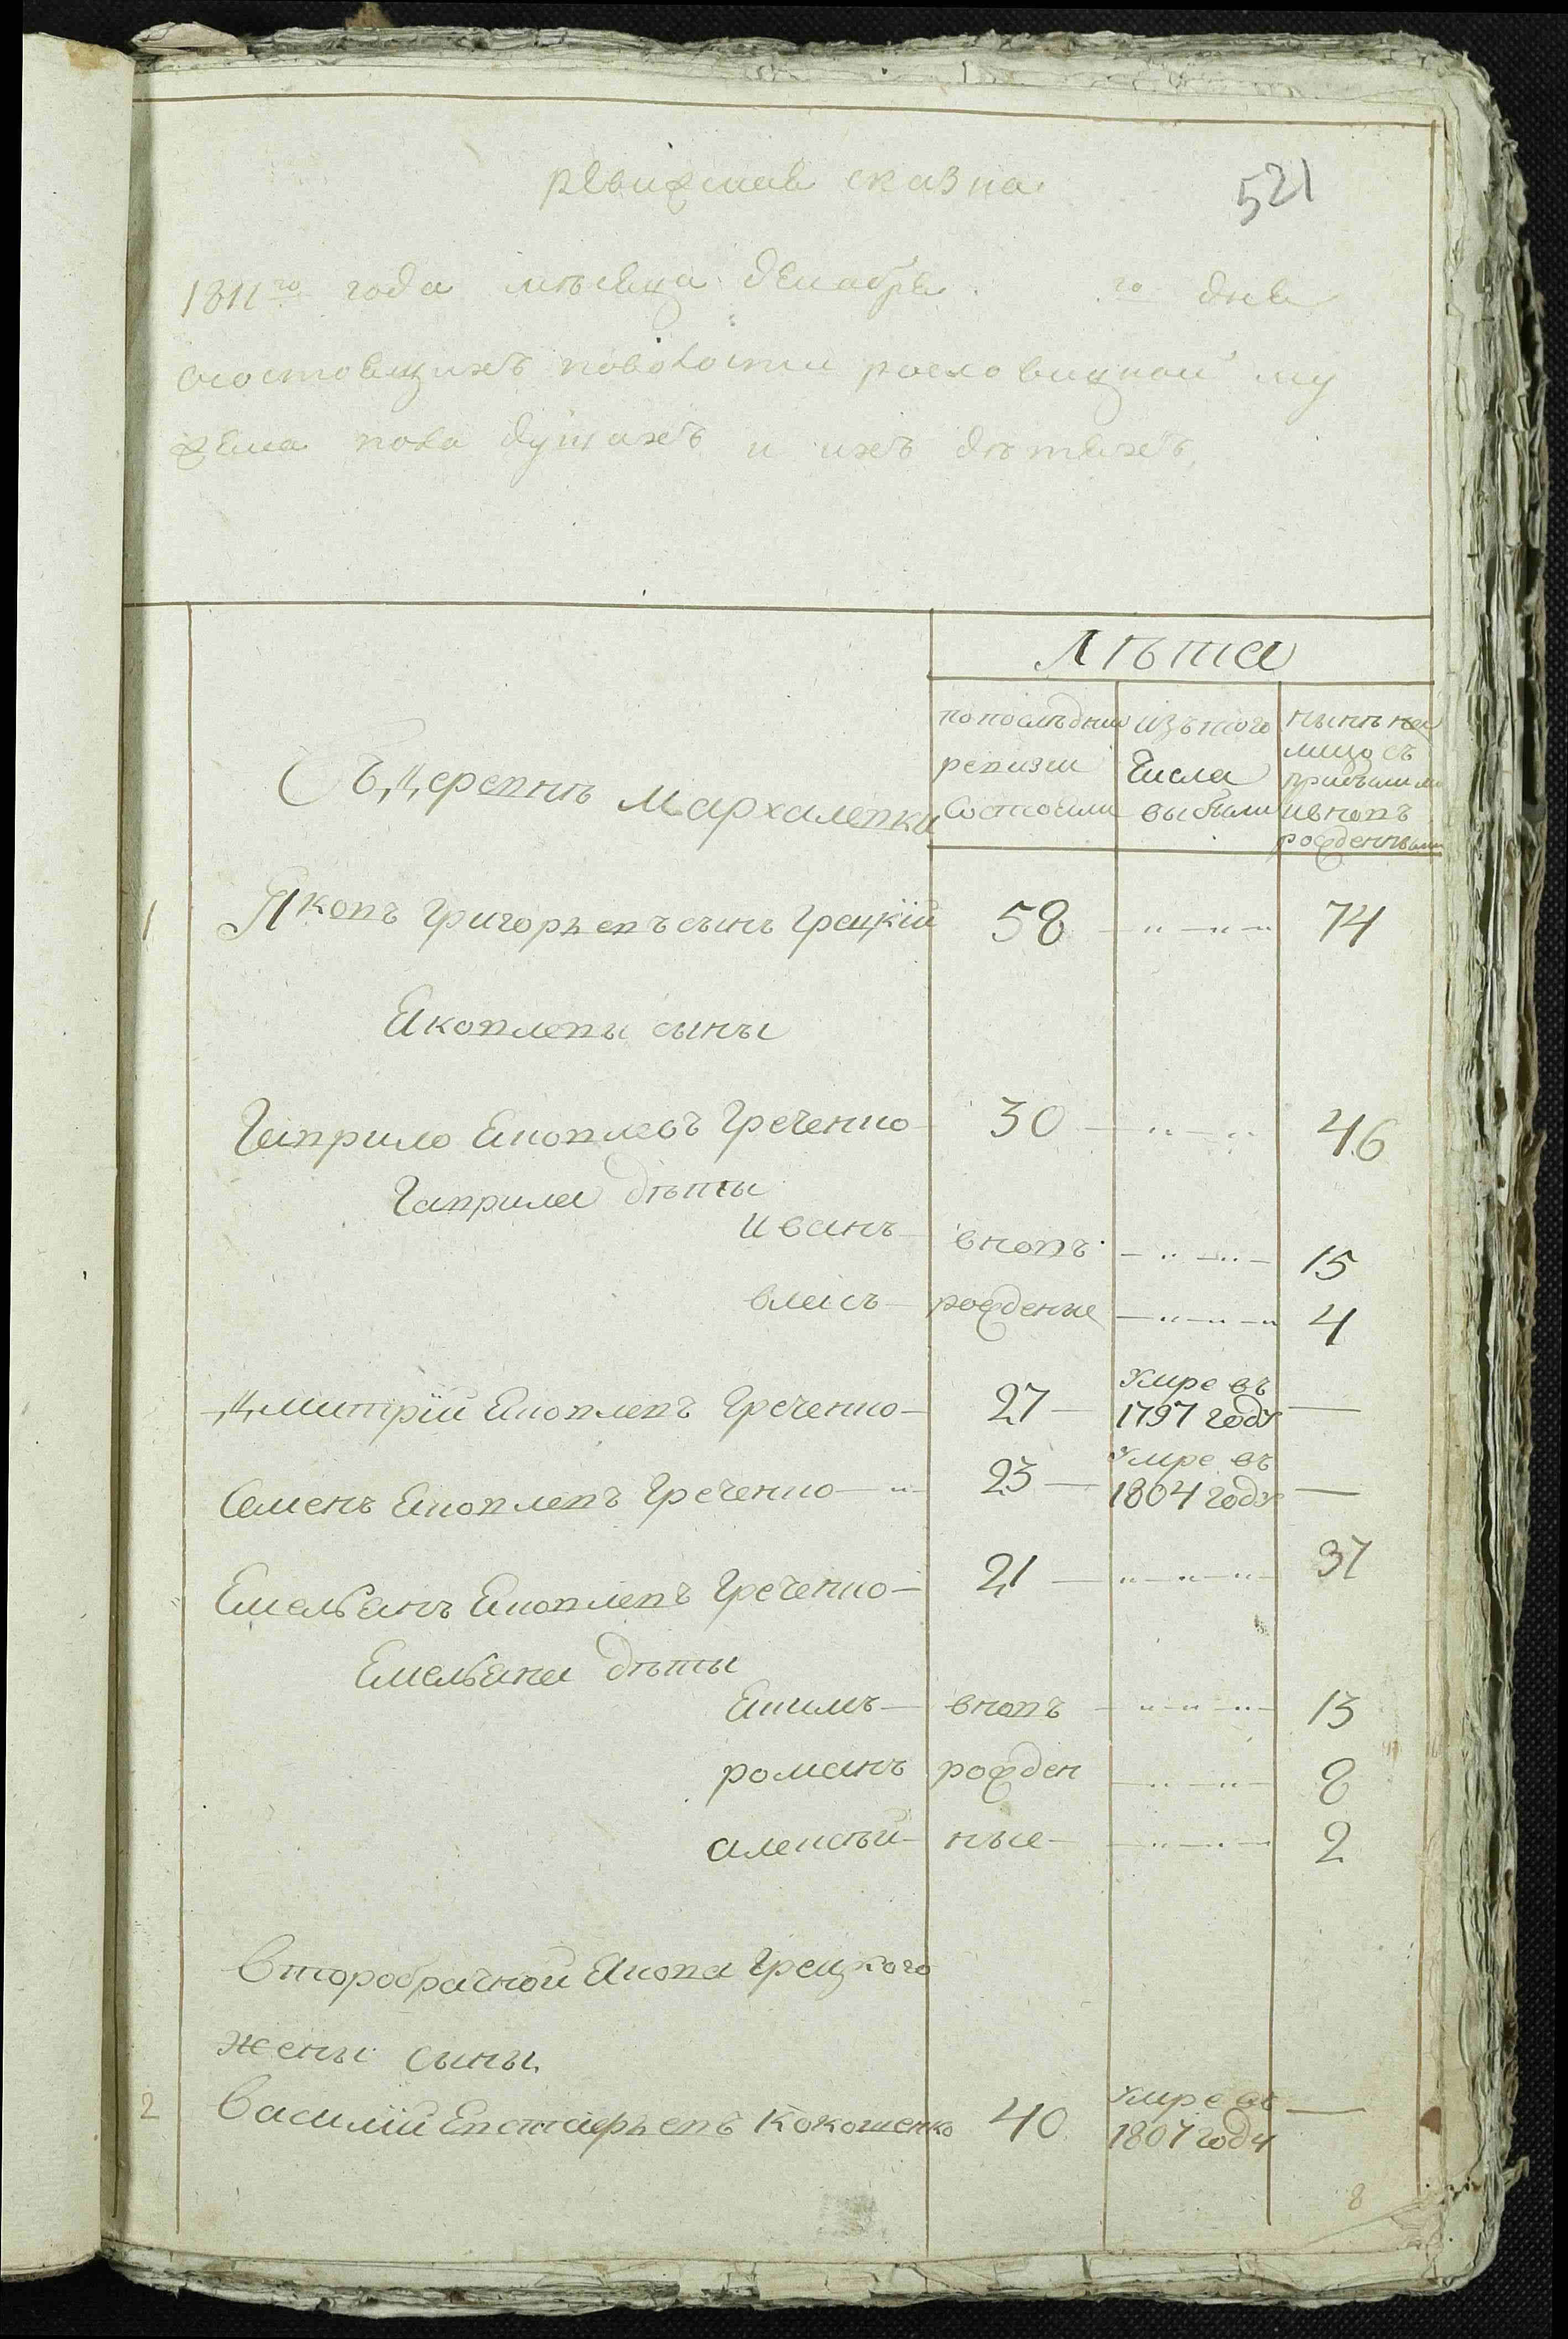 ревизская сказка
521
1811го года мѣсяца декабря го дня
состоящихъ поволости рослови
жеска пола душахъ и ихъ дѣтяхъ
Лѣта
попослѣдній ревизіи Состояли
изътого Числа выбыли
нынѣ на лицо съ прибылыми ивновъ рожденными
Съ Деревнѣ Мархалевки
1 Яковъ Григорьевъ сынъ Грецкій 58 74
Яковлевы сыны
Гаврило Яковлевъ Греченко 30 46
Гаврила дѣты
иванъ вновъ 15
власъ рожденые 4
Дмитрій Яковлевъ Греченко 27 Умре въ 1797 году
Семенъ Яковлевъ Греченко 23 Умре въ 1804 году
Емельянъ Яковлевъ Греченко 21 37
Емельяна дѣты
Якимъ вновъ 13
романъ рожден 8
алексѣй ные 2
Второбрачной Якова Грецкого
жены сыны
2 Василій Евстафьевъ Кокошенко 40 Умре въ 1807 году
8